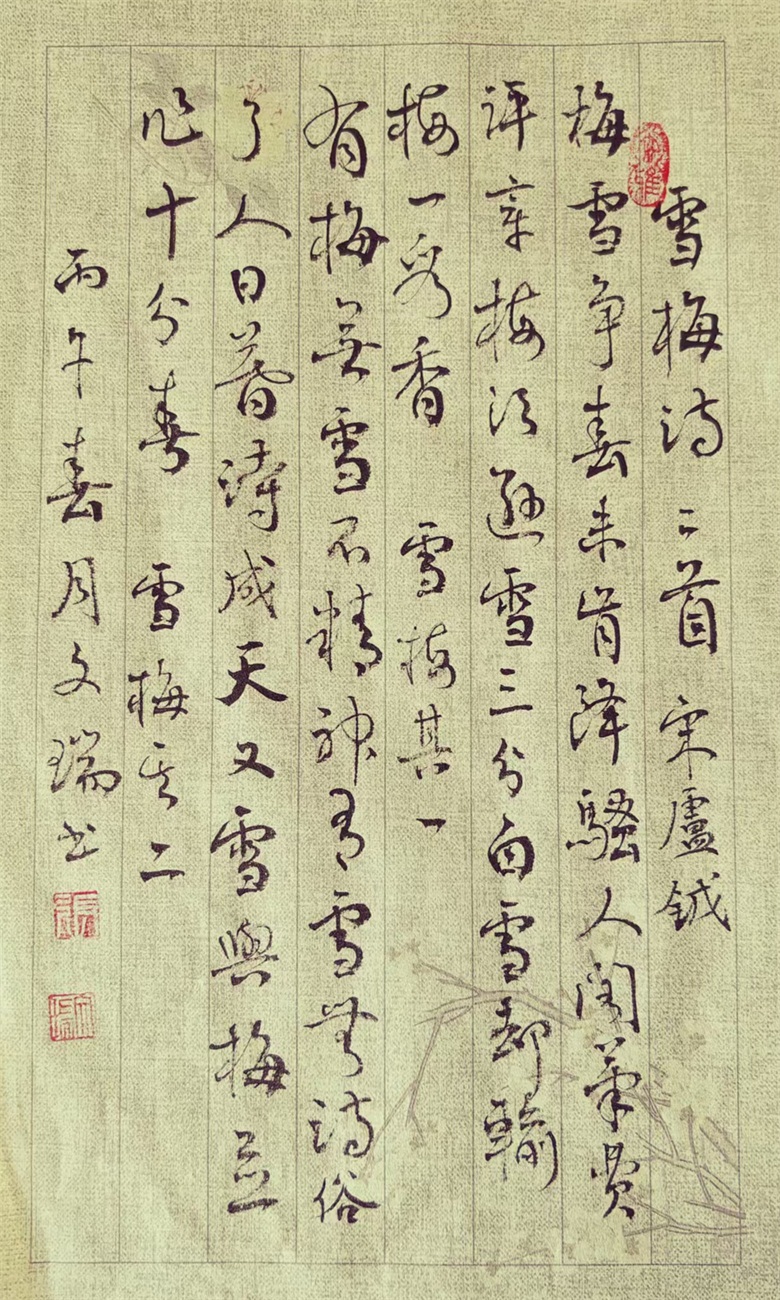 雪梅詩二首 宋盧鉞
梅雪争春未肯降騷人閣筆費
評章梅須遜雪三分白雪却輸
梅一段香 雪梅其一
有梅無雪不精神有雪無詩俗
了人日暮詩成天又雪與梅並
作十分春 雪梅其二
丙午春月文瑞书